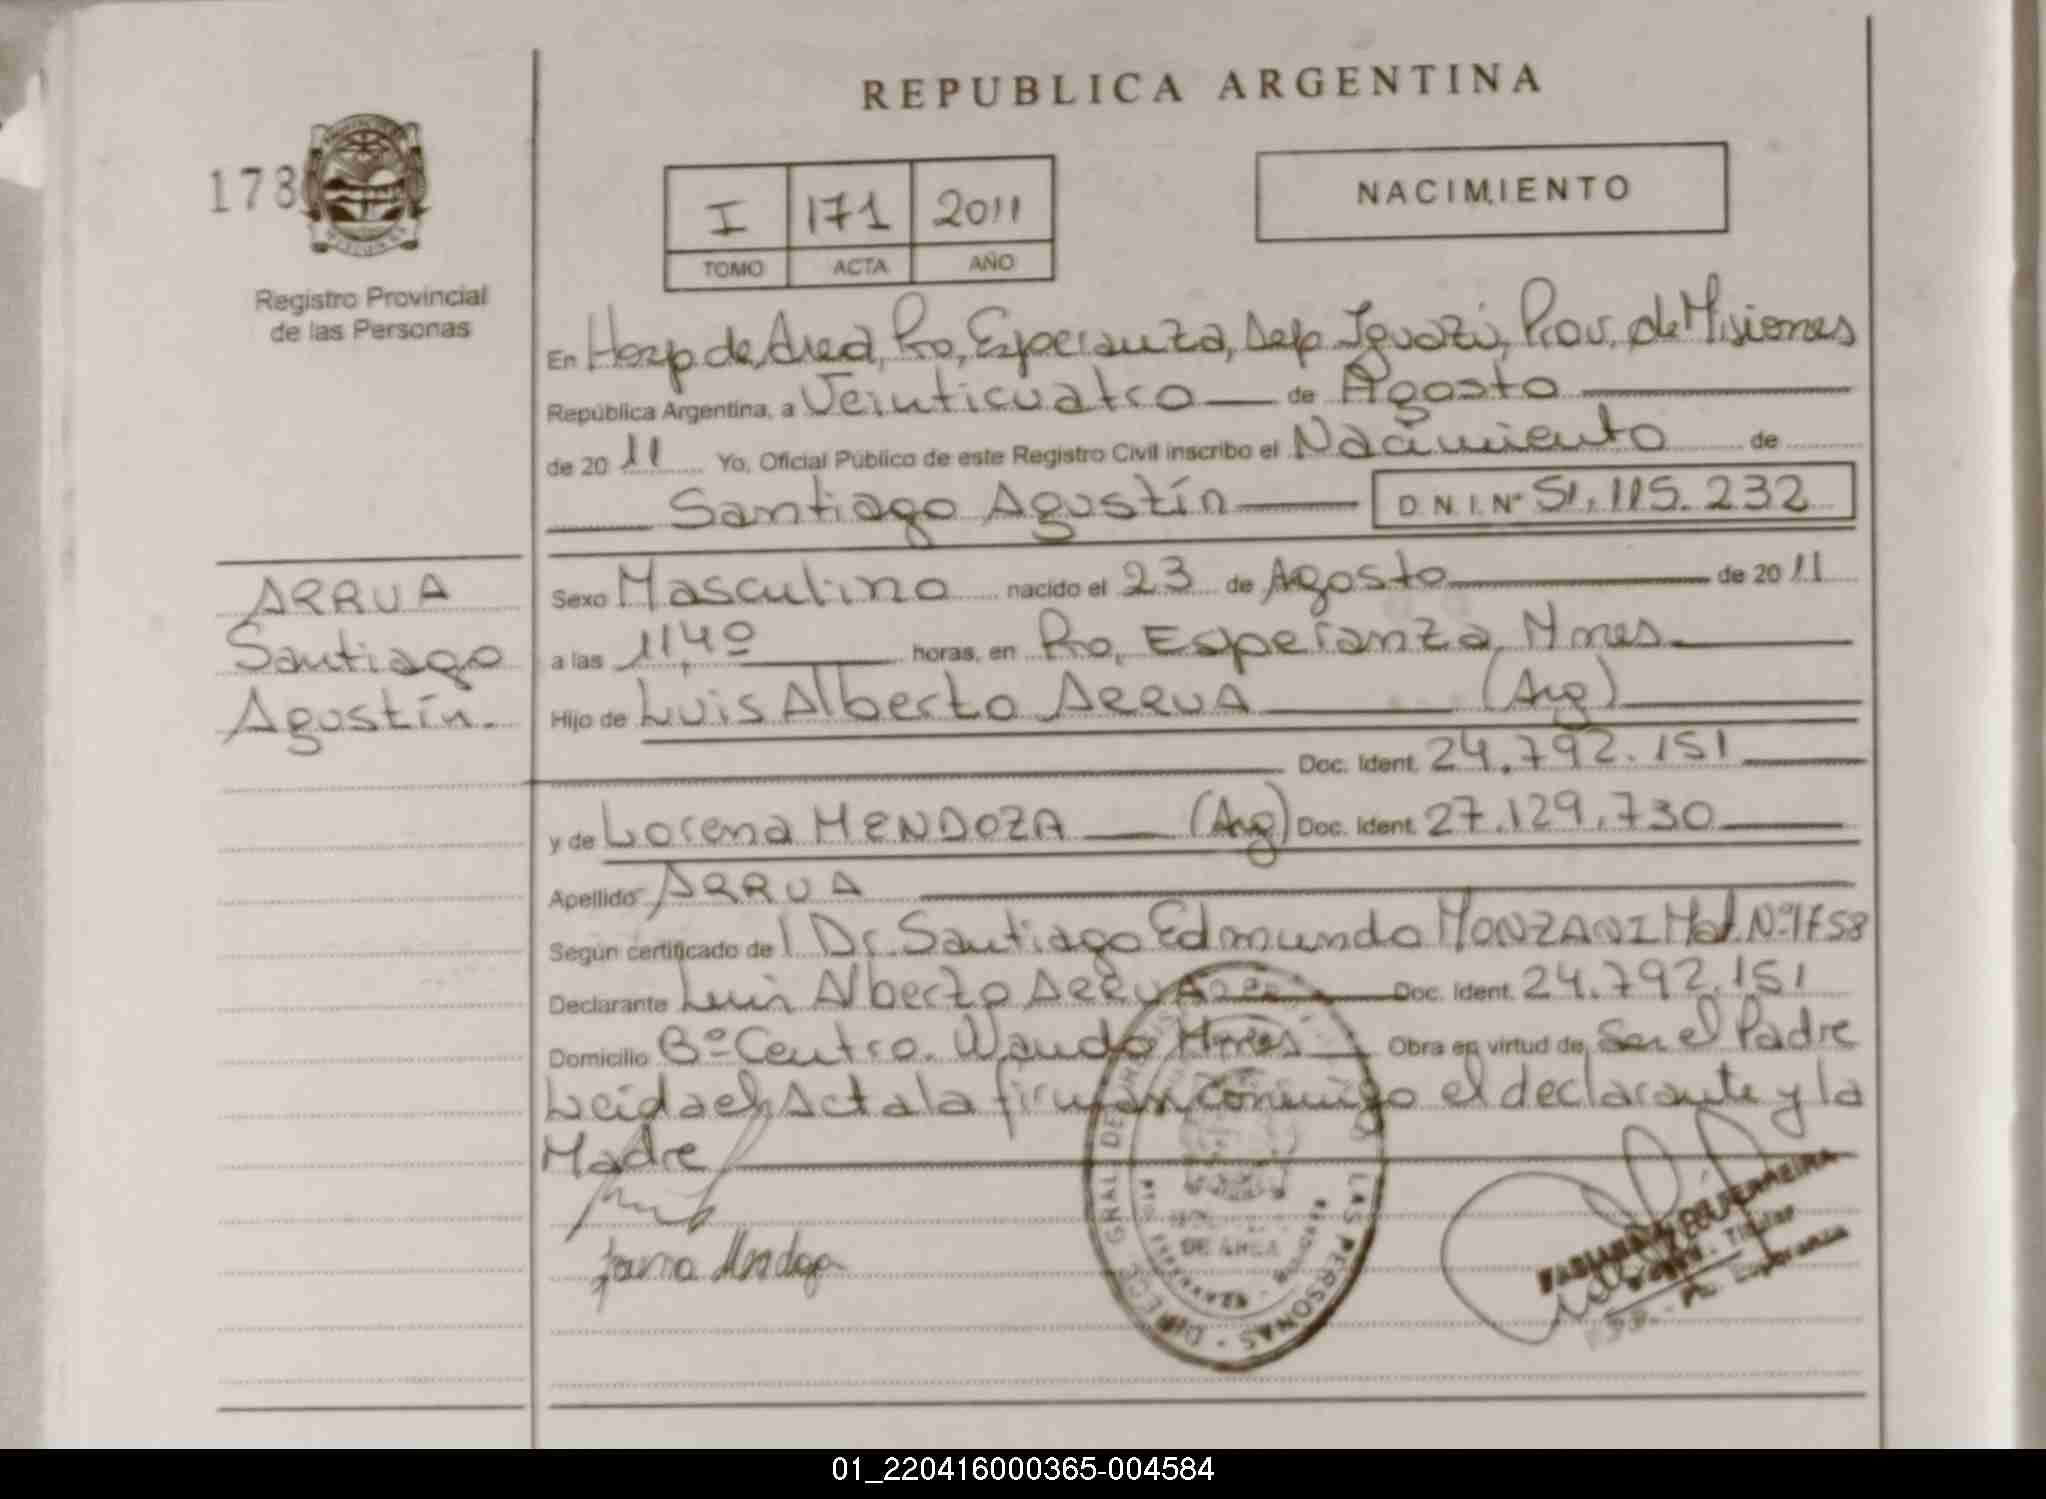 REPUBLICA ARGENTINA
178
NACIMIENTO
I 171 2011
TOMO ACTA AÑO
Registro Provincial
de las Personas
En Hosp de Area, Pto, Esperanza, Dep. Iguazú, Prov. de Misiones
República Argentina, a Veinticuatro de Agosto
de 2011 Yo, Oficial Público de este Registro Civil inscribo el Nacimiento de
Santiago Agustín D N. I. Nº 51.115.232
ARRUA
Santiago
Agustín.
Sexo Masculino nacido el 23 de Agosto de 2011
a las 11,40 horas, en Pto, Esperanza, Mnes
Hijo de Luis Alberto ARRUA (Arg)
Doc. Ident. 24.792.151
y de Lorena MENDOZA (Arg) Doc. Ident. 27.129.730
Apellido ARRUA
Según certificado de l Dr. Santiago Edmundo MONZANI Mat. Nº
Declarante Luis Alberto ARRUA Doc. Ident. 24.792.151
Domicilio Bº Centro. Wanda Mnes Obra en virtud de Ser el Padre
Leida el Acta la firman conmigo el declarante y la
Madre
DIRECC GRAL DE LAS PERSONAS
DE AREA
FERREIRA
Titular
Pto. Esperanza
01_220416000365-004584